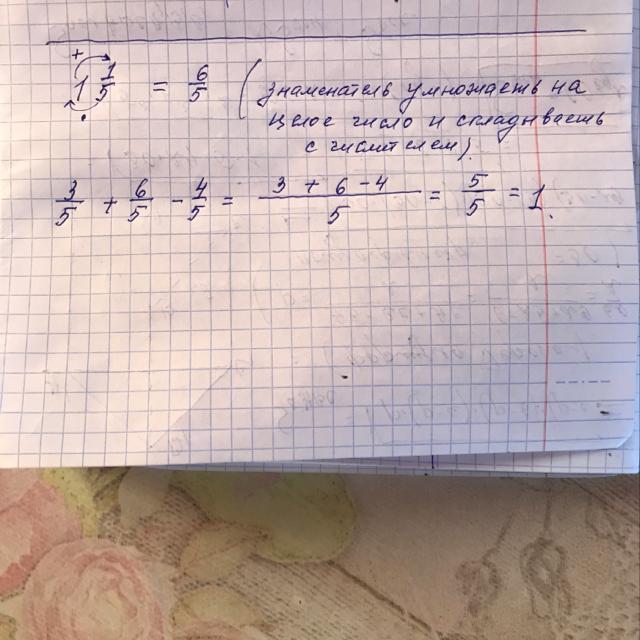 1 1/5 = 6/5 (знаменатель умножаеть на
целое число и складываеть
с числителем).
3/5 + 6/5 - 4/5 = (3 + 6 - 4)/5 = 5/5 = 1.